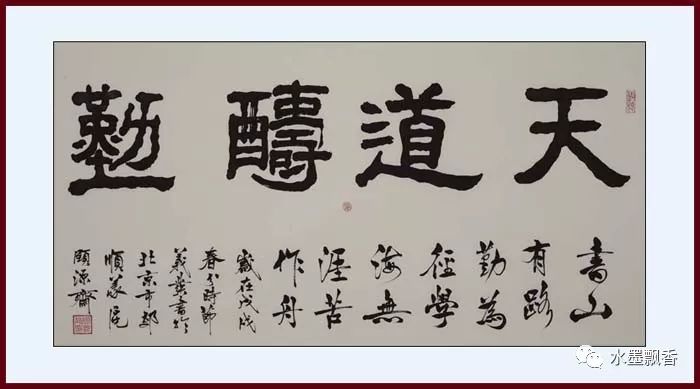 天道醻勤
書山
有路
勤為
徑學
海無
涯苦
作舟
歲在戊戌
春分時節
書於
北京市郊
順義
頤源齋
水墨飘香